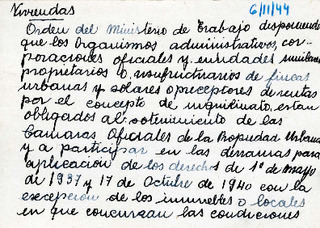 Viviendas 6/11/44
Orden del Ministerio de Trabajo disponiendo
que los Organismos administrativos, cor-
poraciones oficiales y entidades
propietarios o usufructuarios de fincas
urbanas y solares o preceptores de rentas
por el concepto de inquilinato, estan
obligados al sostenimiento de las
Camaras Oficiales de la Propiedad Urbana
y a participar en las derramas para
aplicación de los derechos de 1º de mayo
de 1937 y 17 de Octubre de 1940 con la
excepción de los inmuebles o locales
en que concurran las condiciones